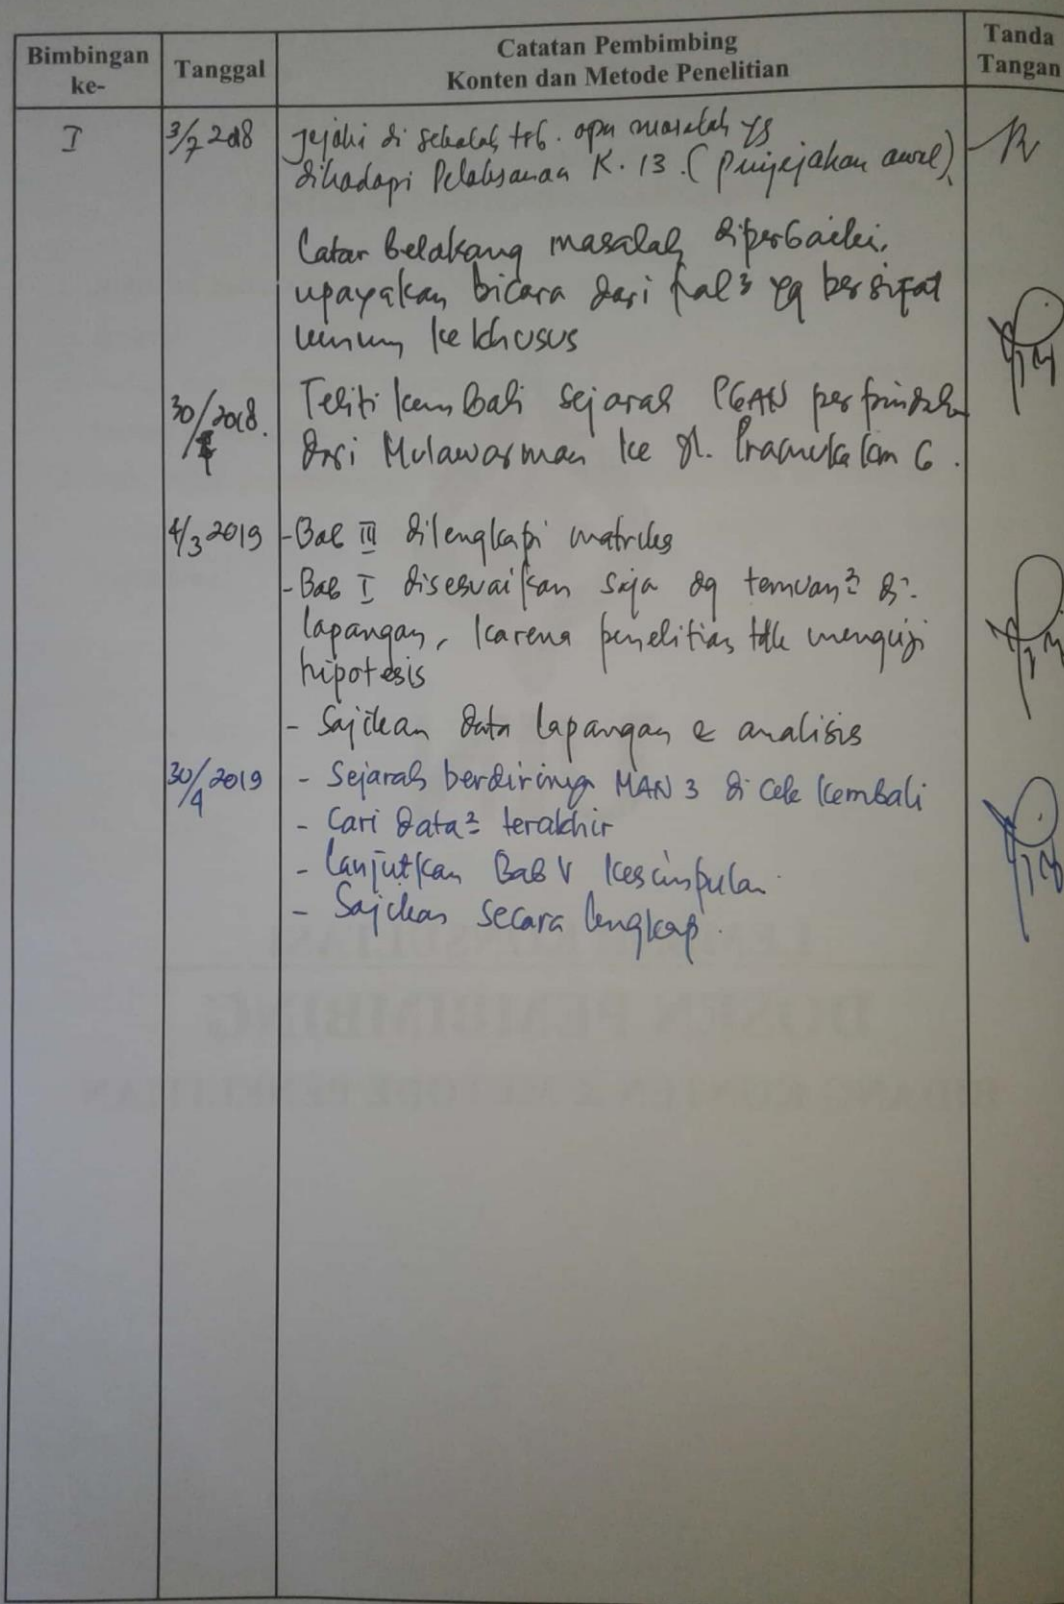 Bimbingan ke-
Tanggal
Catatan Pembimbing
Konten dan Metode Penelitian
Tanda Tangan
I
3/7 2018
jejaki di sekolah trb. apa masalah yg
dihadapi Pelaksanaan K. 13. (penjejakan awal).
Latar belakang masalah diperbaiki,
upayakan bicara dari hal² yg bersifat
umum ke khusus
30/ 2018.
Teliti kembali sejarah PGAN perpindahan
dari Mulawarman ke Jl. Pramuka km 6.
4/3 2019
- Bab III dilengkapi matriks
- Bab I disesuaikan saja dg temuan² di
lapangan, karena penelitian tdk menguji
hipotesis
- Sajikan data lapangan & analisis
30/4 2019
- Sejarah berdirinya MAN 3 di cek kembali
- Cari data² terakhir
- Lanjutkan Bab V Kesimpulan
- Sajikan secara lengkap.